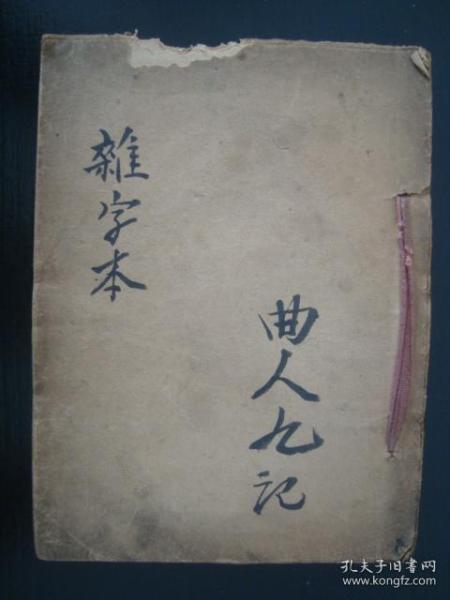 雜字本
曲人九記
孔夫子旧书网
www.kongfz.com